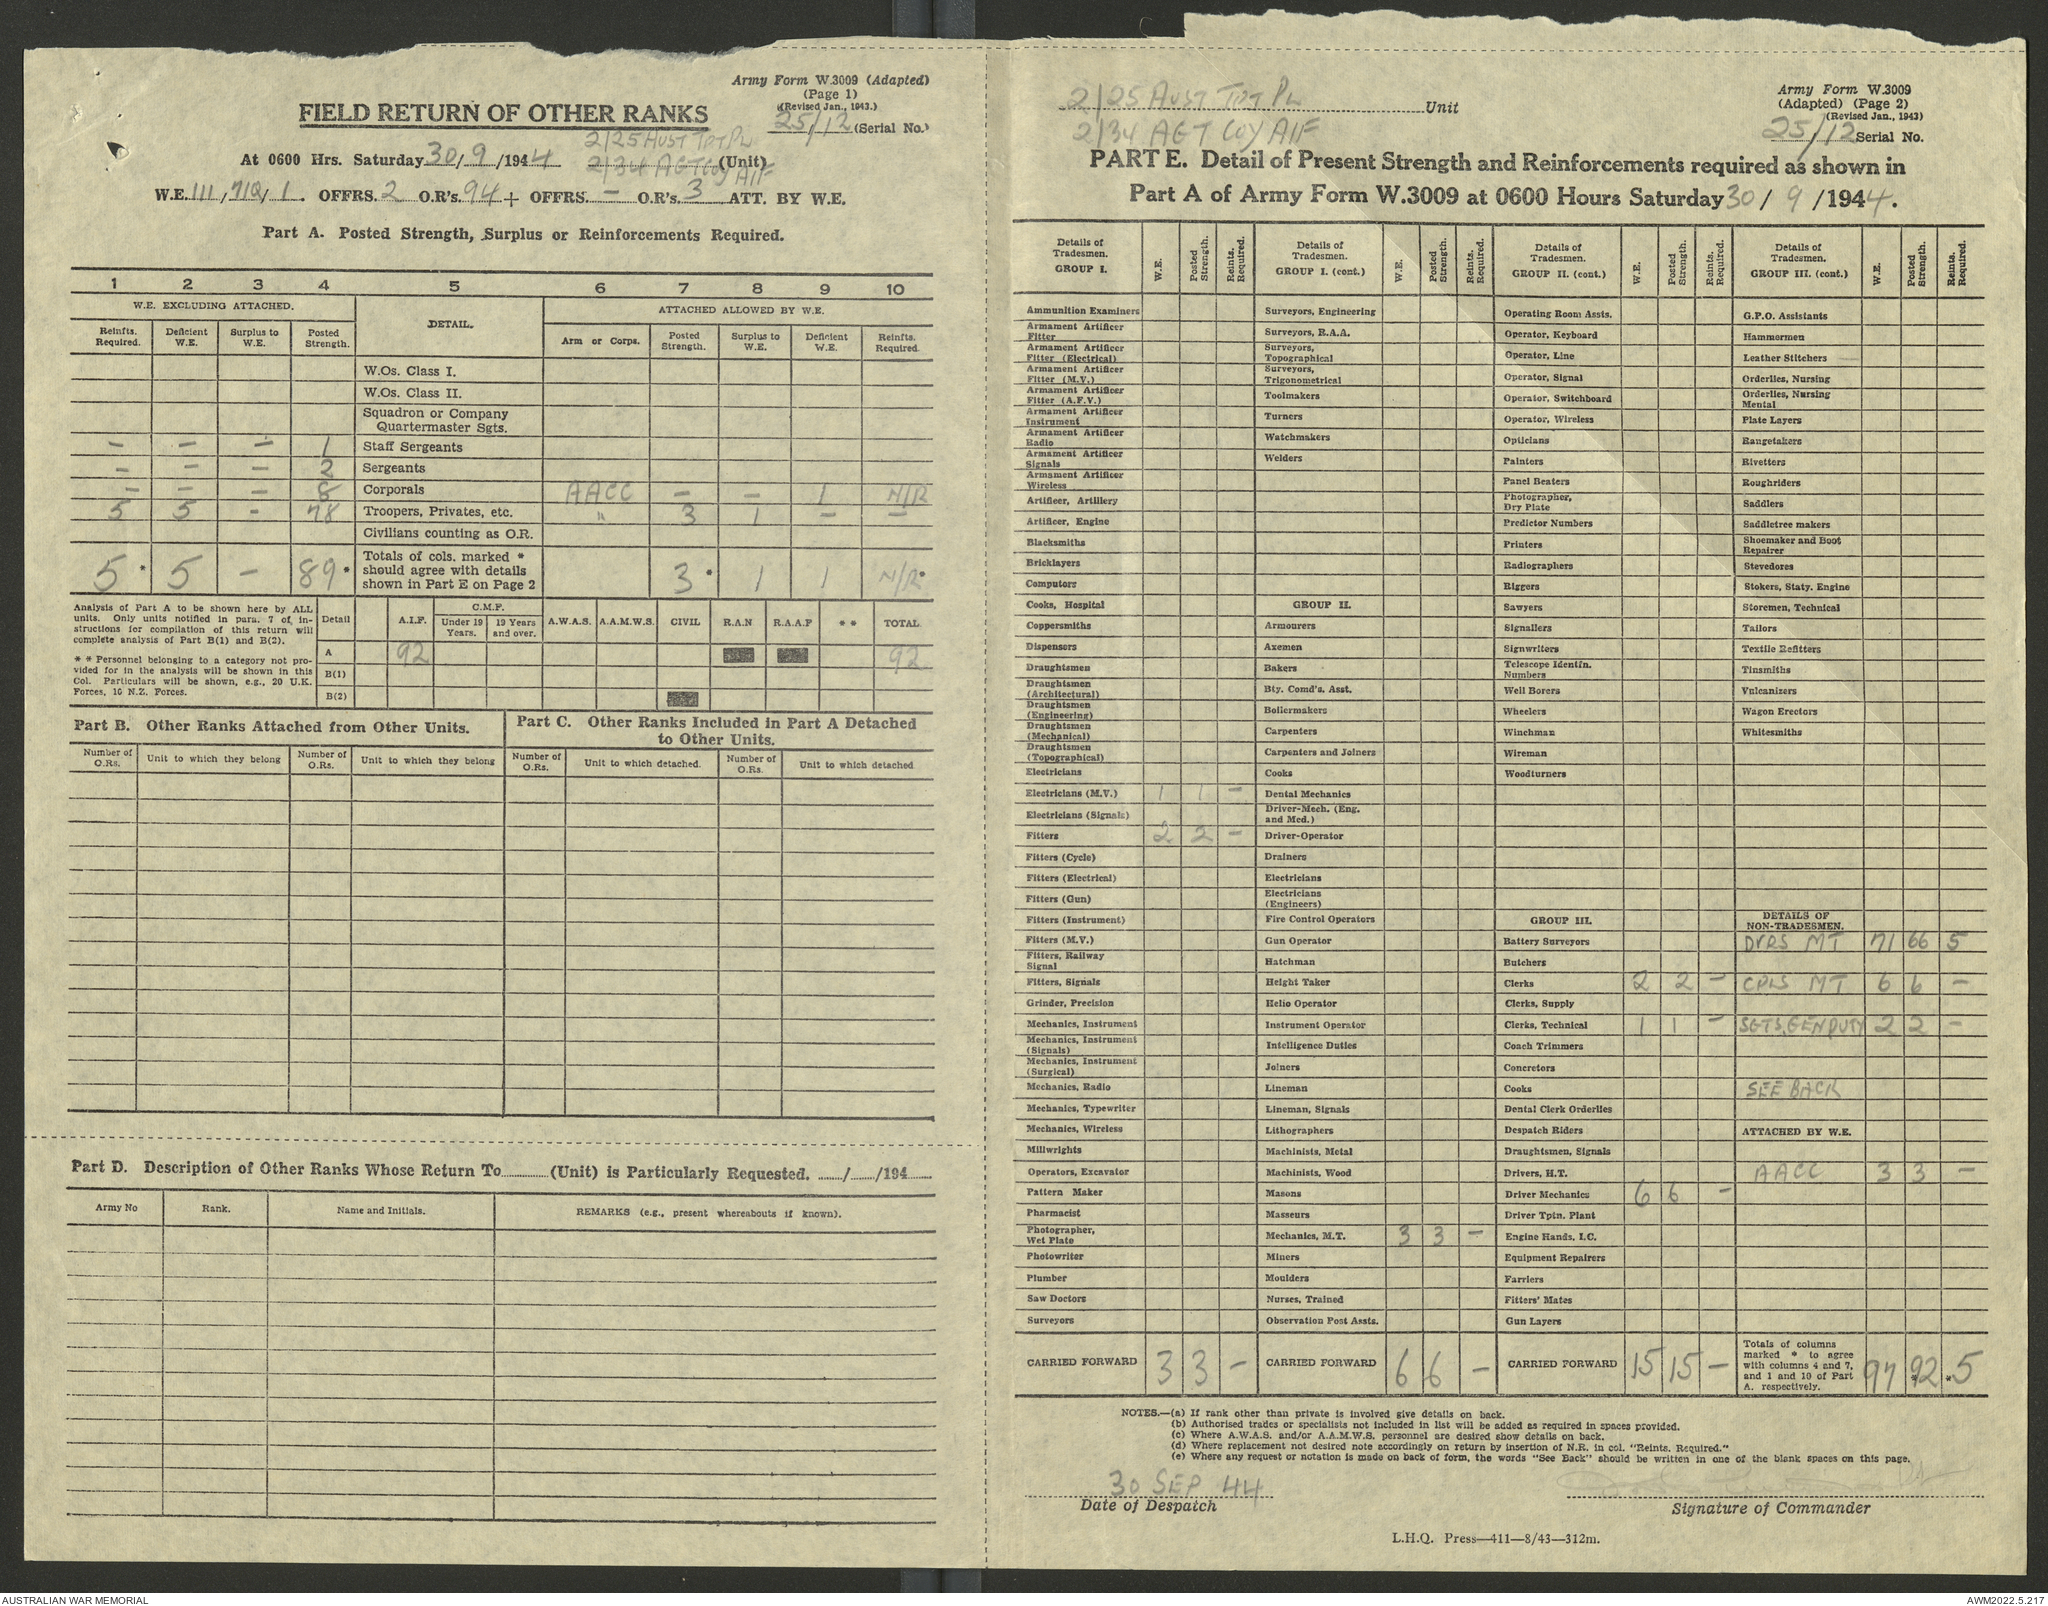 Army Form W.3009 (Adapted)
(Page 1)
(Revised Jan., 1943.)
FIELD RETURN OF OTHER RANKS
25/12 (Serial No.)
2/25 AUST TPT PL
At 0600 Hrs. Saturday 30/9/1944 2/34 AGT COY AIF (Unit)
W.E. 111/712/1. OFFRS. 2 O.R's. 94 + OFFRS. — O.R's. 3 ATT. BY W.E.
Part A. Posted Strength, Surplus or Reinforcements Required.
1 2 3 4 5 6 7 8 9 10
W.E. EXCLUDING ATTACHED. DETAIL. ATTACHED ALLOWED BY W.E.
Reinfts. Required. Deficient W.E. Surplus to W.E. Posted Strength. Arm or Corps. Posted Strength. Surplus to W.E. Deficient W.E. Reinfts. Required.
W.Os. Class I.
W.Os. Class II.
Squadron or Company Quartermaster Sgts.
— — — 1 Staff Sergeants
— — — 2 Sergeants
— — — 8 Corporals AACC — — 1 N/R
5 5 — 78 Troopers, Privates, etc. " 3 1 — —
Civilians counting as O.R.
5 * 5 — 89 * Totals of cols. marked * should agree with details shown in Part E on Page 2 3 * 1 1 N/R *
Analysis of Part A to be shown here by ALL units. Only units notified in para. 7 of instructions for compilation of this return will complete analysis of Part B(1) and B(2).
* * Personnel belonging to a category not provided for in the analysis will be shown in this Col. Particulars will be shown, e.g., 20 U.K. Forces, 10 N.Z. Forces.
Detail A.I.F. C.M.F. Under 19 Years. 19 Years and over. A.W.A.S. A.A.M.W.S. CIVIL R.A.N R.A.A.F * * TOTAL
A 92 92
B(1)
B(2)
Part B. Other Ranks Attached from Other Units.
Part C. Other Ranks Included in Part A Detached to Other Units.
Number of O.Rs. Unit to which they belong Number of O.Rs. Unit to which they belong Number of O.Rs. Unit to which detached. Number of O.Rs. Unit to which detached
Part D. Description of Other Ranks Whose Return To (Unit) is Particularly Requested. / /194
Army No Rank. Name and Initials. REMARKS (e.g., present whereabouts if known).
2/25 AUST TPT PL Unit
2/34 AGT COY AIF
Army Form W.3009
(Adapted) (Page 2)
(Revised Jan., 1943)
25/12 Serial No.
PART E. Detail of Present Strength and Reinforcements required as shown in
Part A of Army Form W.3009 at 0600 Hours Saturday 30/9/1944.
Details of Tradesmen. GROUP I. W.E. Posted Strength. Reints. Required.
Ammunition Examiners
Armament Artificer Fitter
Armament Artificer Fitter (Electrical)
Armament Artificer Fitter (M.V.)
Armament Artificer Fitter (A.F.V.)
Armament Artificer Instrument
Armament Artificer Radio
Armament Artificer Signals
Armament Artificer Wireless
Artificer, Artillery
Artificer, Engine
Blacksmiths
Bricklayers
Computors
Cooks, Hospital
Coppersmiths
Dispensers
Draughtsmen
Draughtsmen (Architectural)
Draughtsmen (Engineering)
Draughtsmen (Mechanical)
Draughtsmen (Topographical)
Electricians
Electricians (M.V.) 1 1 —
Electricians (Signals)
Fitters 2 2 —
Fitters (Cycle)
Fitters (Electrical)
Fitters (Gun)
Fitters (Instrument)
Fitters (M.V.)
Fitters, Railway Signal
Fitters, Signals
Grinder, Precision
Mechanics, Instrument
Mechanics, Instrument (Signals)
Mechanics, Instrument (Surgical)
Mechanics, Radio
Mechanics, Typewriter
Mechanics, Wireless
Millwrights
Operators, Excavator
Pattern Maker
Pharmacist
Photographer, Wet Plate
Photowriter
Plumber
Saw Doctors
Surveyors
CARRIED FORWARD 3 3 —
Details of Tradesmen. GROUP I. (cont.) W.E. Posted Strength. Reints. Required.
Surveyors, Engineering
Surveyors, R.A.A.
Surveyors, Topographical
Surveyors, Trigonometrical
Toolmakers
Turners
Watchmakers
Welders
GROUP II.
Armourers
Axemen
Bakers
Bty. Comd's. Asst.
Boilermakers
Carpenters
Carpenters and Joiners
Cooks
Dental Mechanics
Driver-Mech. (Eng. and Med.)
Driver-Operator
Drainers
Electricians
Electricians (Engineers)
Fire Control Operators
Gun Operator
Hatchman
Height Taker
Helio Operator
Instrument Operator
Intelligence Duties
Joiners
Lineman
Lineman, Signals
Lithographers
Machinists, Metal
Machinists, Wood
Masons
Masseurs
Mechanics, M.T. 3 3 —
Miners
Moulders
Nurses, Trained
Observation Post Assts.
CARRIED FORWARD 6 6 —
Details of Tradesmen. GROUP II. (cont.) W.E. Posted Strength. Reints. Required.
Operating Room Assts.
Operator, Keyboard
Operator, Line
Operator, Signal
Operator, Switchboard
Operator, Wireless
Opticians
Painters
Panel Beaters
Photographer, Dry Plate
Predictor Numbers
Printers
Radiographers
Riggers
Sawyers
Signallers
Signwriters
Telescope Identfn. Numbers
Well Borers
Wheelers
Winchman
Wireman
Woodturners
GROUP III.
Battery Surveyors
Butchers
Clerks 2 2 —
Clerks, Supply
Clerks, Technical 1 1 —
Coach Trimmers
Concretors
Cooks
Dental Clerk Orderlies
Despatch Riders
Draughtsmen, Signals
Drivers, H.T.
Driver Mechanics 6 6 —
Driver Tptn. Plant
Engine Hands, I.C.
Equipment Repairers
Farriers
Fitters' Mates
Gun Layers
CARRIED FORWARD 15 15 —
Details of Tradesmen. GROUP III. (cont.) W.E. Posted Strength. Reints. Required.
G.P.O. Assistants
Hammermen
Leather Stitchers
Orderlies, Nursing
Orderlies, Nursing Mental
Plate Layers
Rangetakers
Rivetters
Roughriders
Saddlers
Saddletree makers
Shoemaker and Boot Repairer
Stevedores
Stokers, Staty. Engine
Storemen, Technical
Tailors
Textile Refitters
Tinsmiths
Vulcanizers
Wagon Erectors
Whitesmiths
DETAILS OF NON-TRADESMEN.
DVRS MT 71 66 5
CPLS MT 6 6 —
SGTS. GEN DUTY 2 2 —
SEE BACK
ATTACHED BY W.E.
AACC 3 3 —
Totals of columns marked * to agree with columns 4 and 7, and 1 and 10 of Part A. respectively. 97 *92 *5
NOTES.—(a) If rank other than private is involved give details on back.
(b) Authorised trades or specialists not included in list will be added as required in spaces provided.
(c) Where A.W.A.S. and/or A.A.M.W.S. personnel are desired show details on back.
(d) Where replacement not desired note accordingly on return by insertion of N.R. in col. "Reints. Required."
(e) Where any request or notation is made on back of form, the words "See Back" should be written in one of the blank spaces on this page.
30 SEP 44
Date of Despatch
Signature of Commander
L.H.Q. Press—411—8/43—312m.
AUSTRALIAN WAR MEMORIAL
AWM2022.5.217